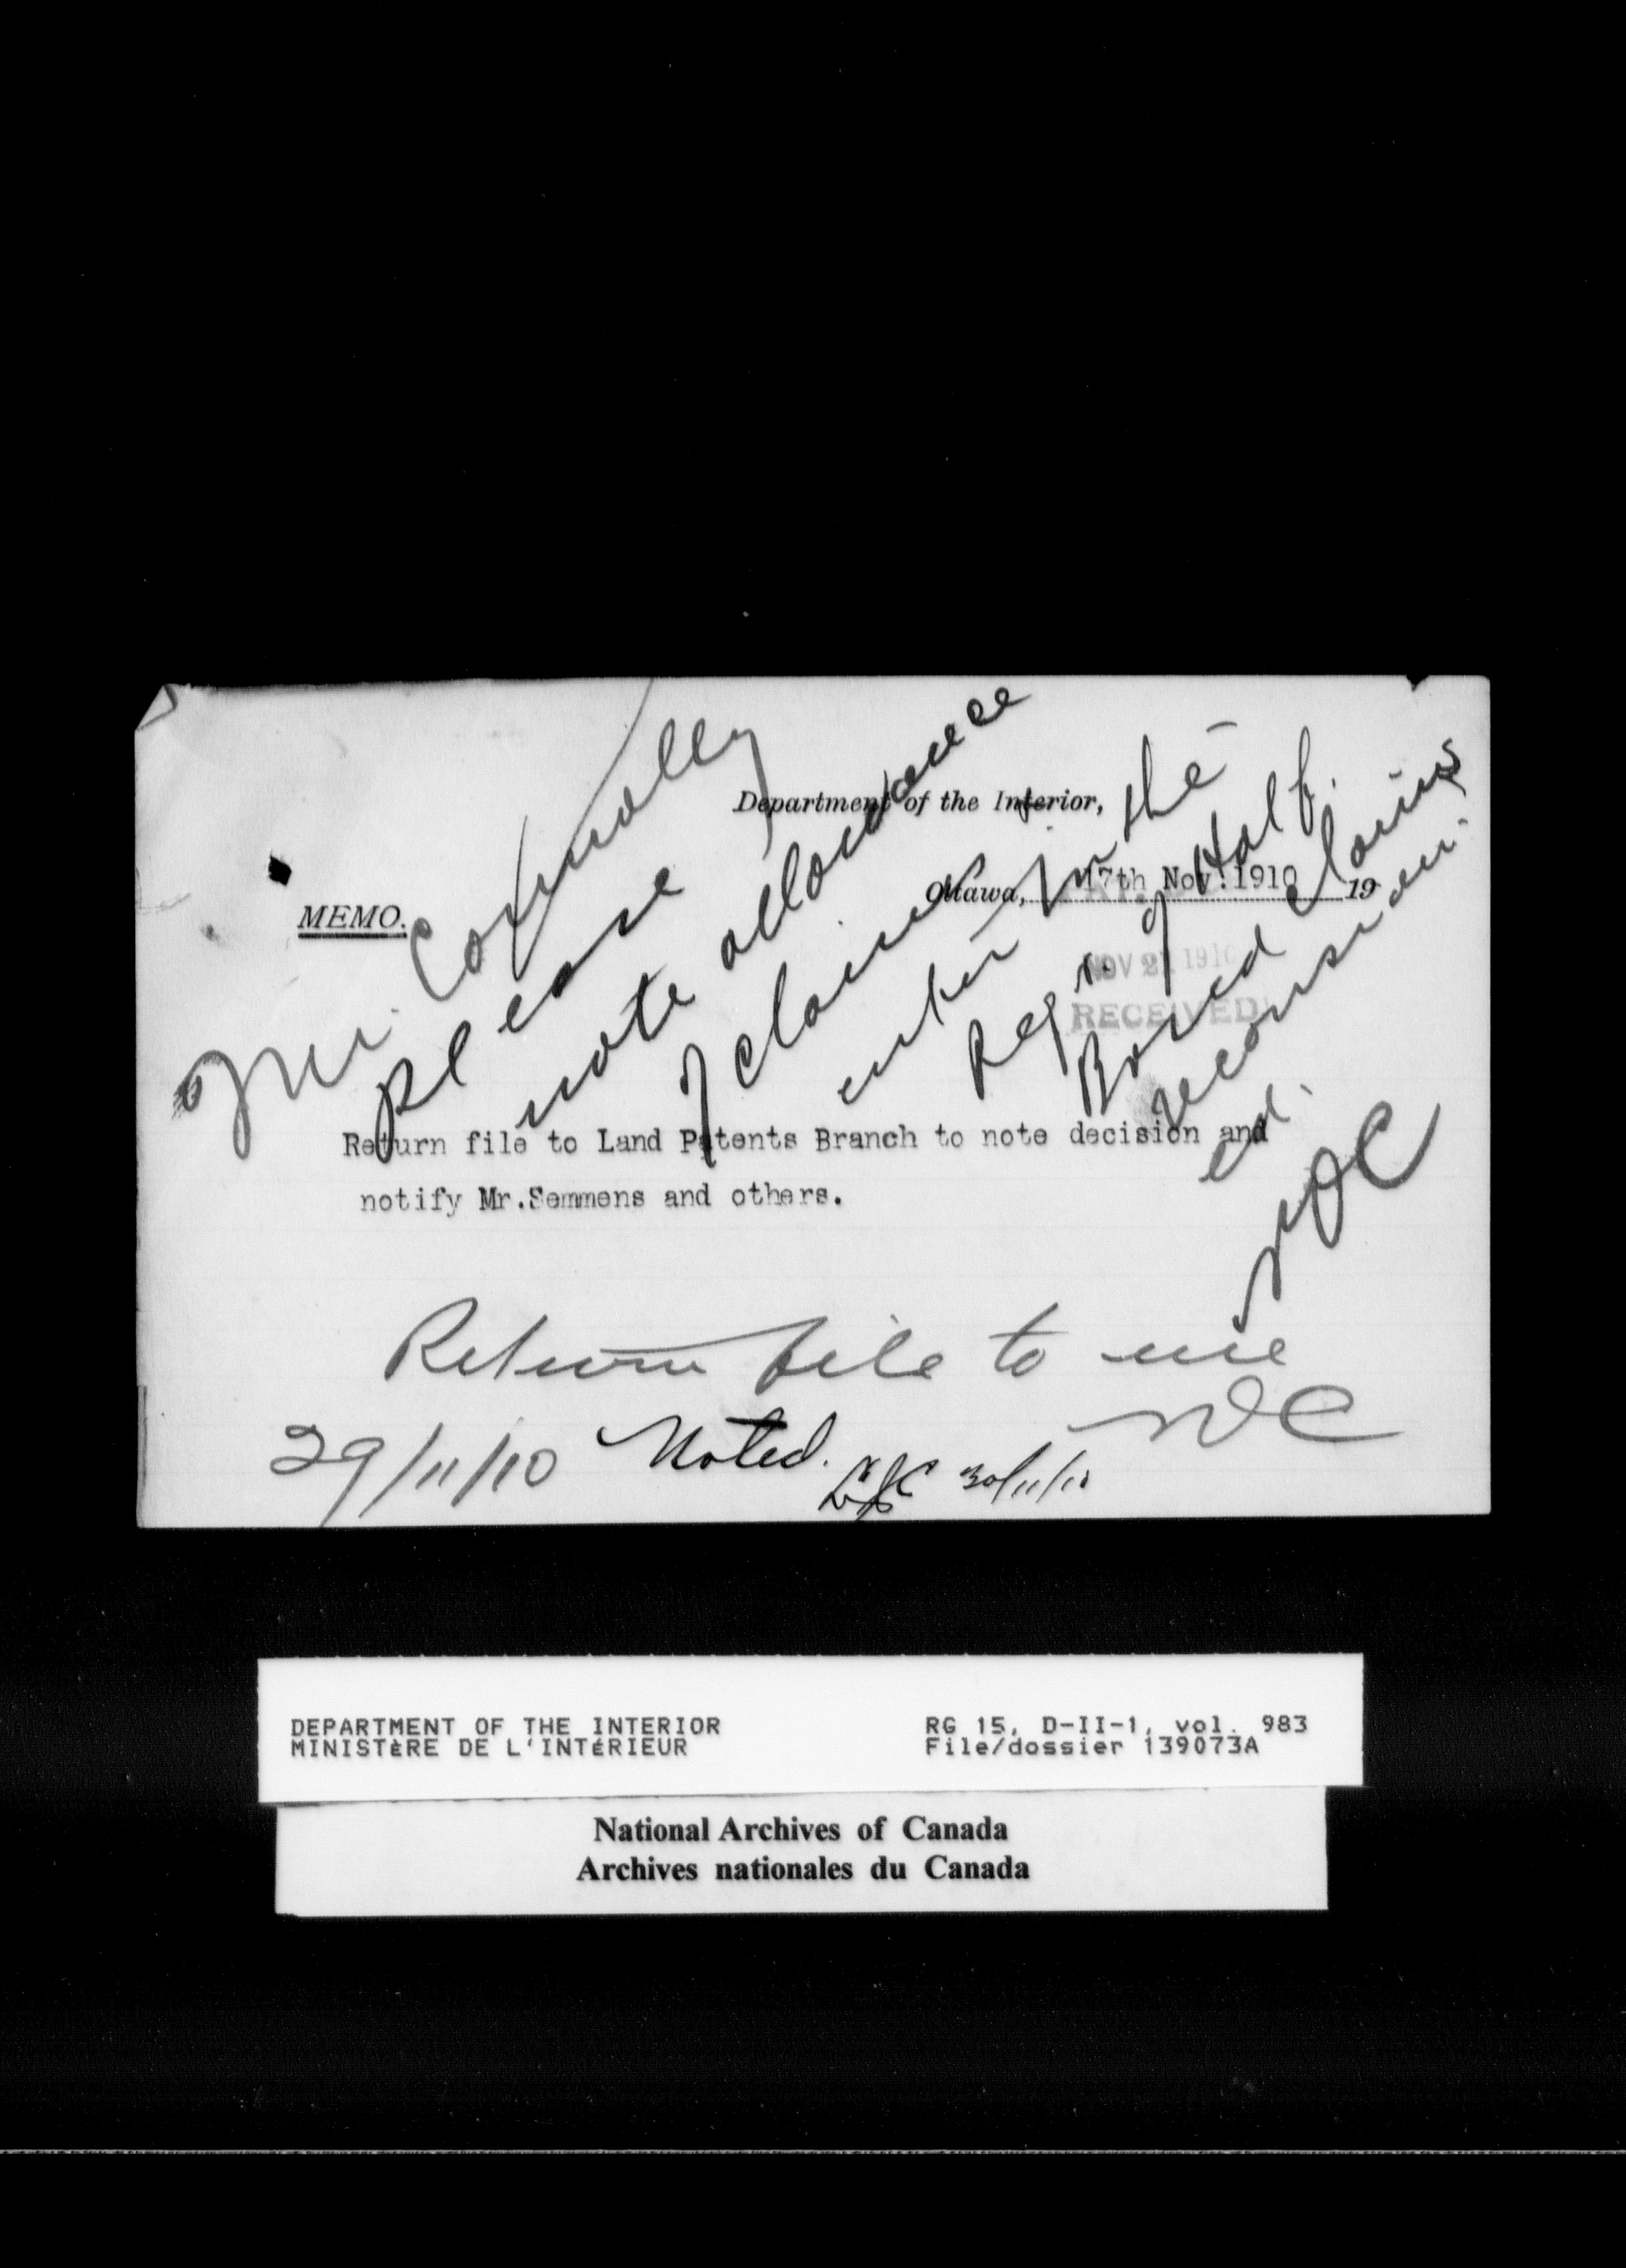 Department of the Interior,
Ottawa, 17th Nov. 1910 19
MEMO.
NOV 2 1910
RECEIVED
Mr. Connolly
Please
note allowance
of claims in the
Regr. of Half
Breed claims
reconsider-
ed.
Return file to Land Patents Branch to note decision and
notify Mr.Semmens and others.
Return file to me
NOC
29/11/10 Noted.
30/11/10
DEPARTMENT OF THE INTERIOR
MINISTÈRE DE L'INTÉRIEUR
RG 15, D-II-1, vol. 983
File/dossier 139073A
National Archives of Canada
Archives nationales du Canada